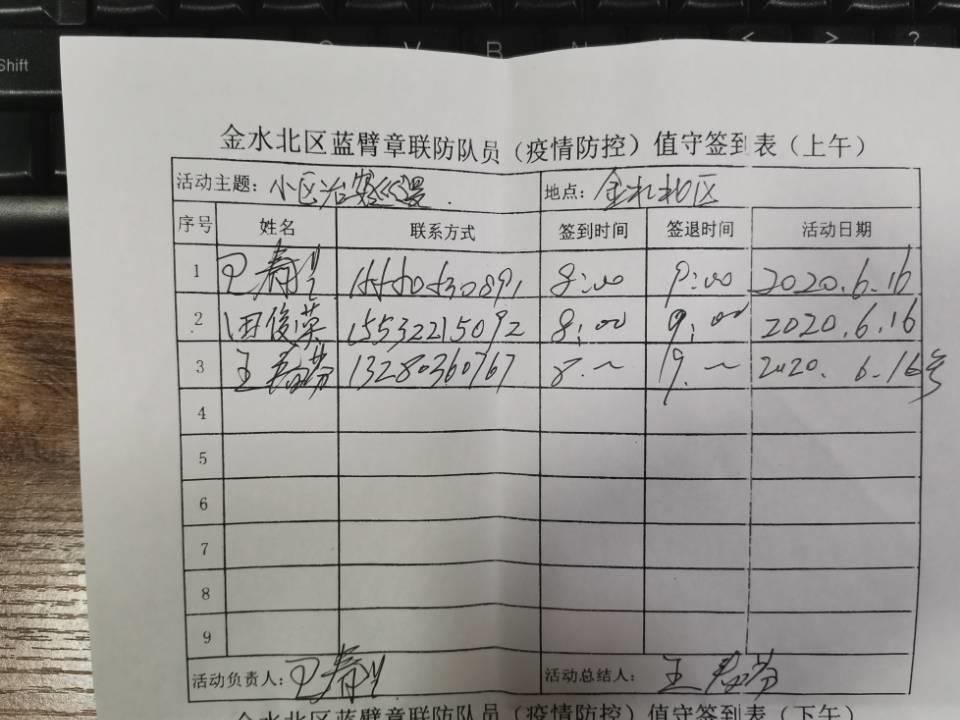 Shift
V B N M < > ?
金水北区蓝臂章联防队员（疫情防控）值守签到表（上午）
活动主题：小区治安巡逻. 地点：金水北区
序号 姓名 联系方式 签到时间 签退时间 活动日期
1 8:00 9:00 2020.6.16
2 田俊荣 15532215092 8:00 9:00 2020.6.16
3 王春芬 13280360767 8.~ 9.~ 2020. 6.16号
4
5
6
7
8
9
活动负责人： 活动总结人：王春芬
金水北区蓝臂章联防队员（疫情防控）值守签到表（下午）